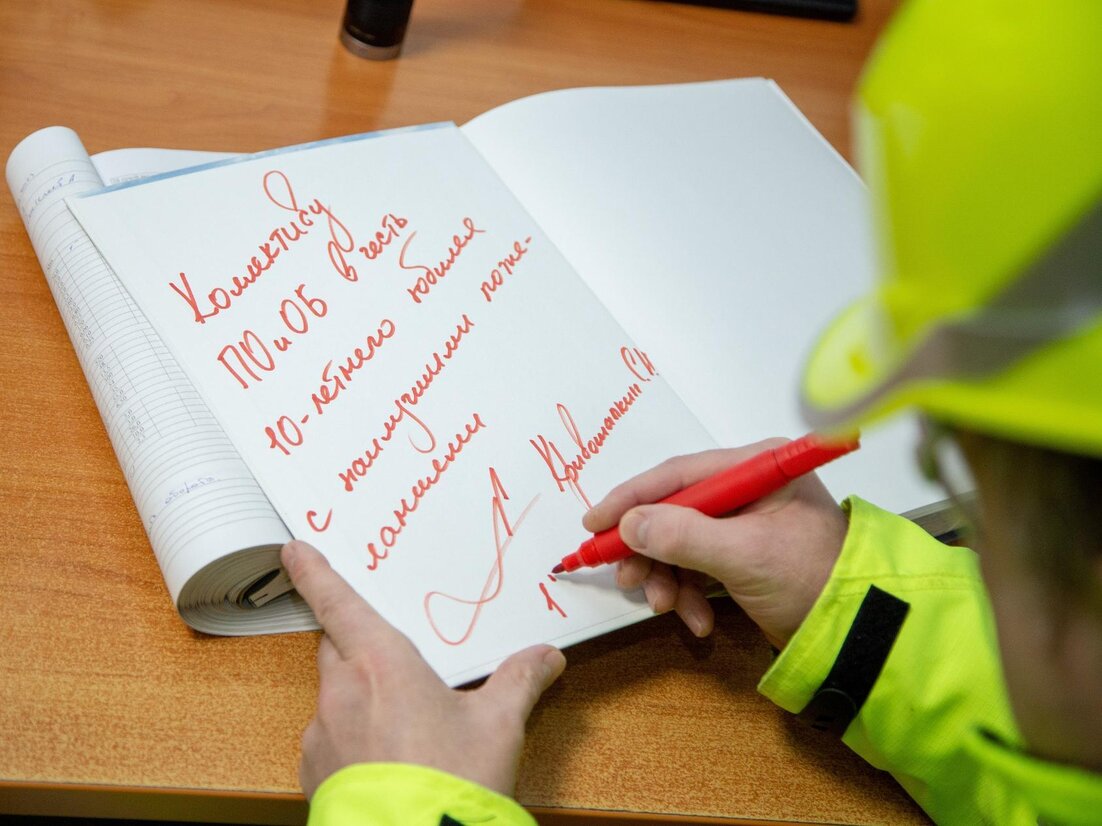 Коллективу
ПО и ОБ в честь
10-летнего юбилея
с наилучшими поже-
ланиями
Кривошапкин С.И.